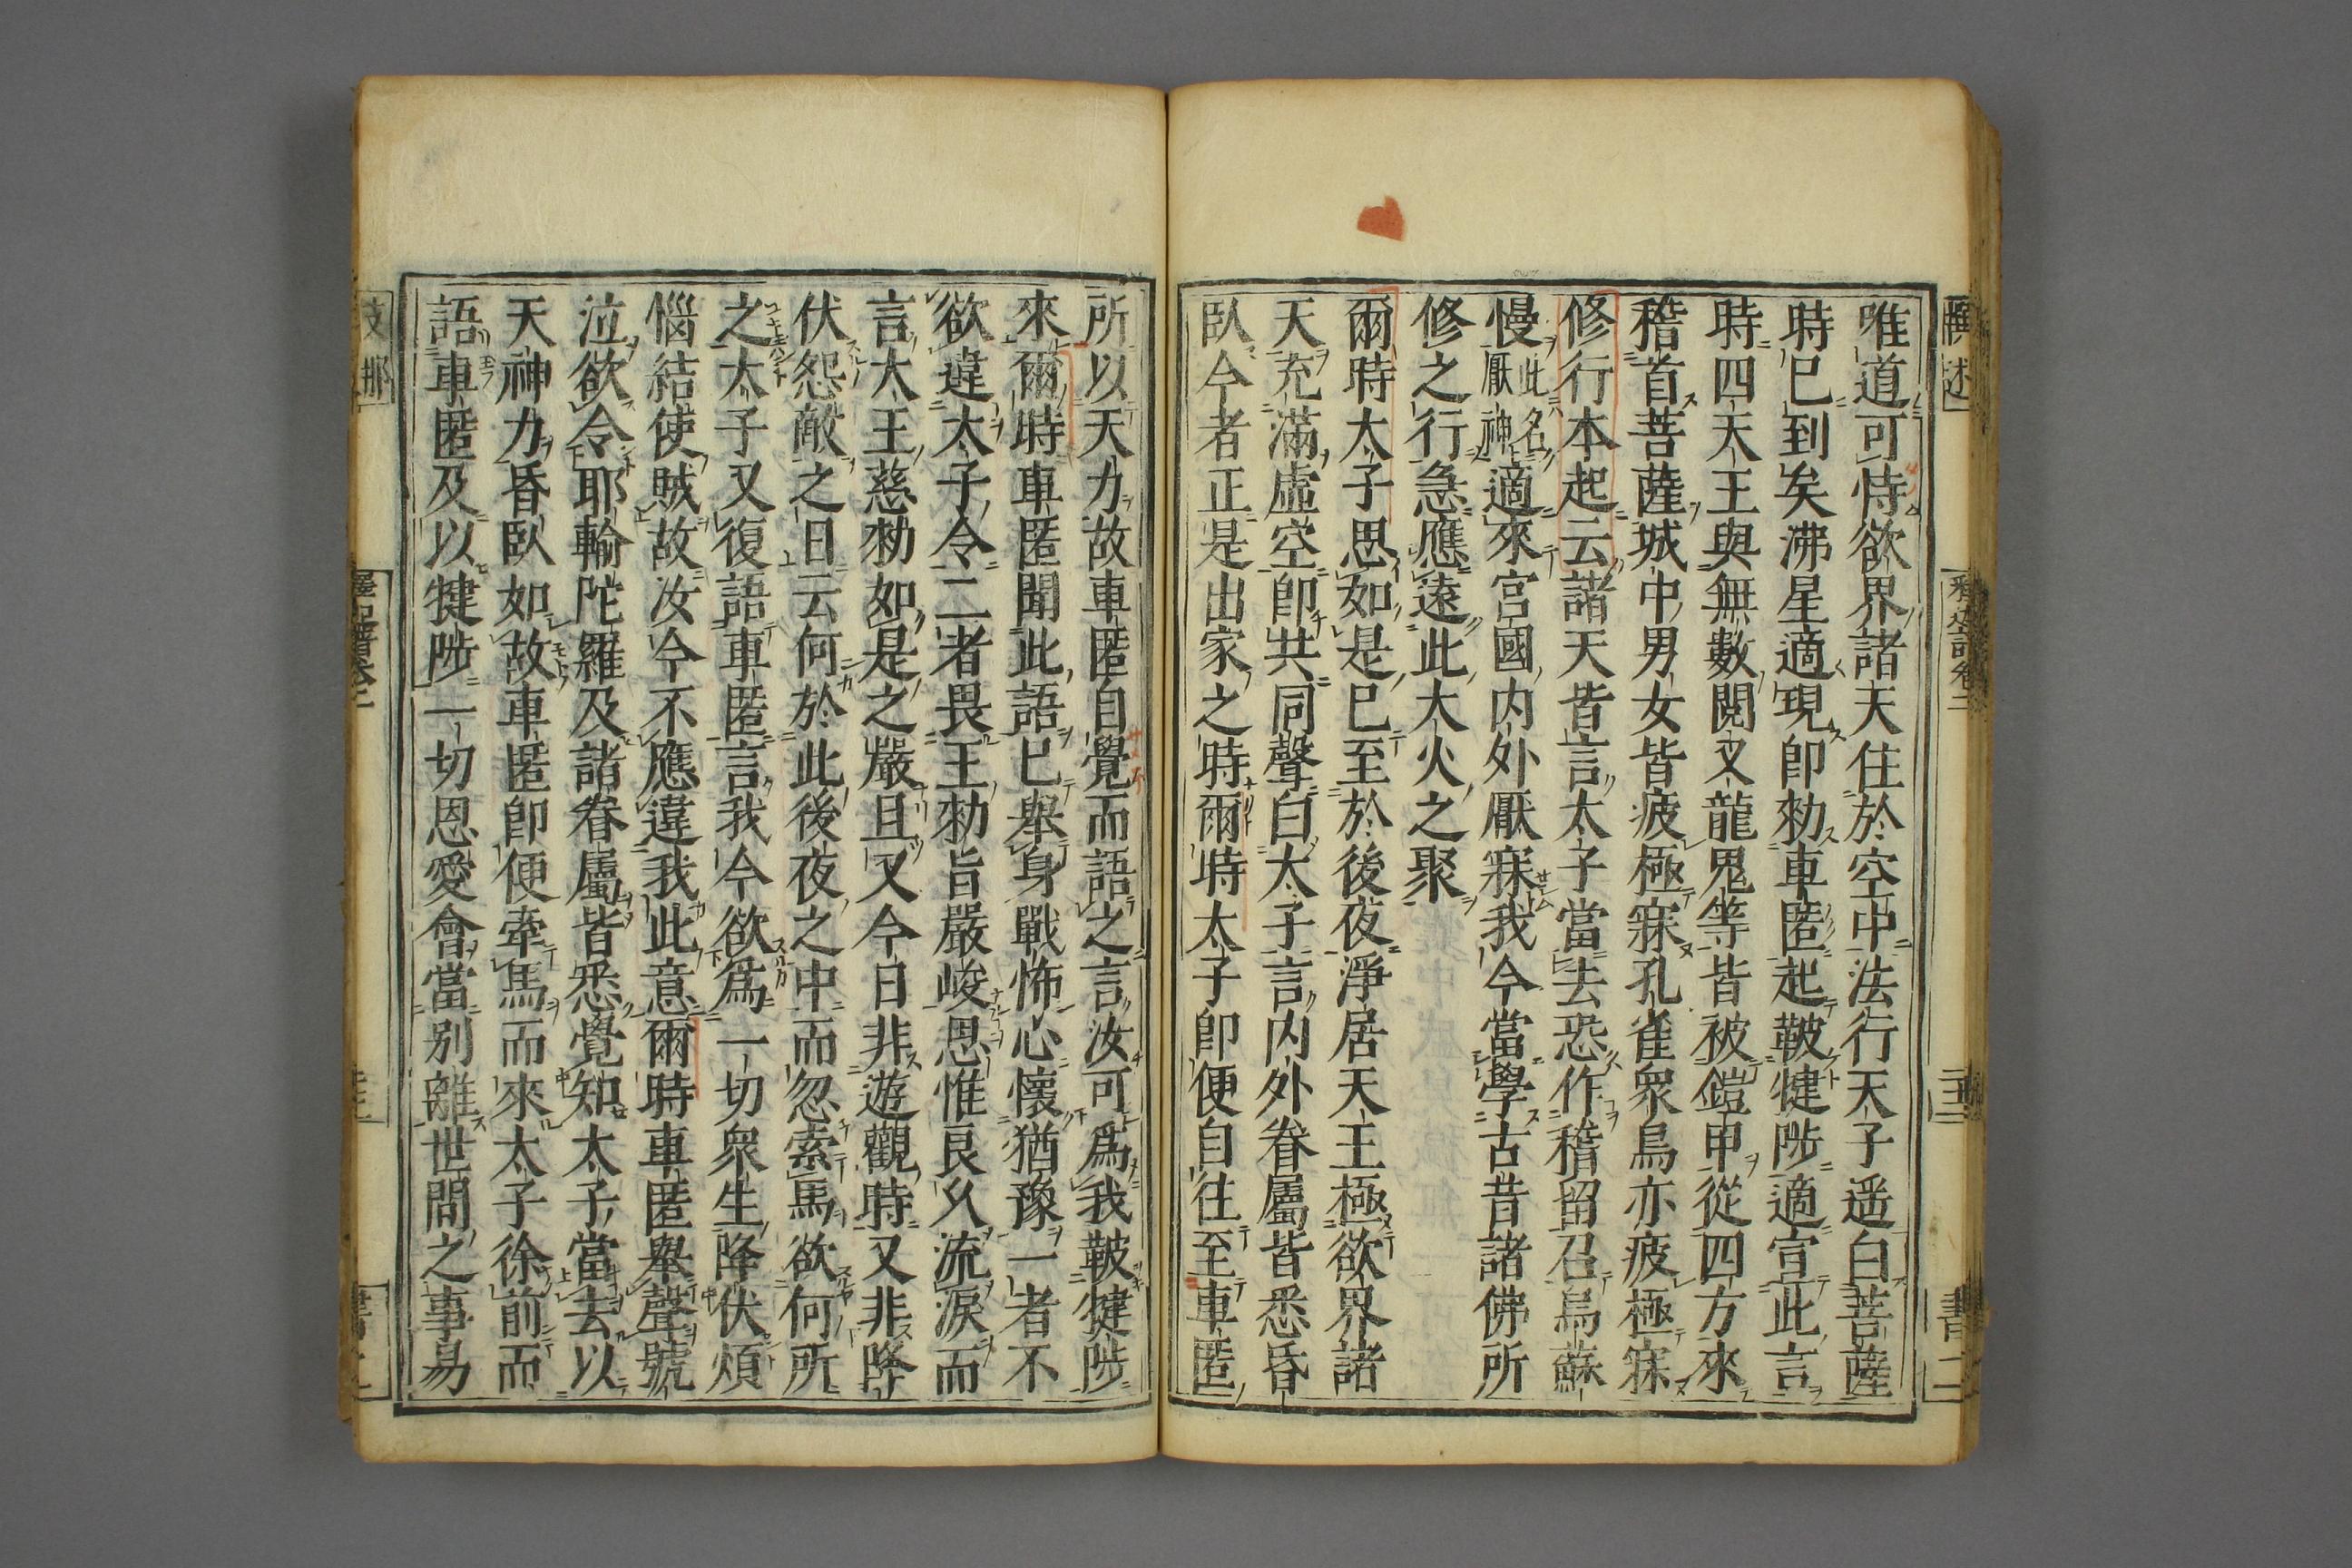 唯道可恃欲界諸天住於空中法行天子遥白菩薩
時已到矣沸星適現即勑車匿起鞁犍陟適宣此言
時四天王與無數閱叉龍鬼等皆被鎧甲從四方來
稽首菩薩城中男女皆疲極寐孔雀衆鳥亦疲極寐
修行本起云諸天皆言太子當去恐作稽留召烏蘇
慢此名厭神適來宮國内外厭寐我今當學古昔諸佛所
修之行急應遠此大火之聚
爾時太子思如是已至於後夜淨居天王極欲界諸
天充滿虛空即共同聲白太子言内外眷屬皆悉昏
臥今者正是出家之時爾時太子即便自往至車匿
所以天力故車匿自覺而語之言汝可爲我鞁犍陟
來爾時車匿聞此語已舉身戰怖心懷猶豫一者不
欲違太子令二者畏王勑旨嚴峻思惟良久流淚而
言太王慈勑如是之嚴且又今日非遊觀時又非降
伏怨敵之日云何於此後夜之中而忽索馬欲何所
之太子又復語車匿言我今欲爲一切衆生降伏煩
惱結使賊故汝今不應違我此意爾時車匿舉聲號
泣欲令耶輸陀羅及諸眷屬皆悉覺知太子當去以
天神力昏臥如故車匿即便牽馬而來太子徐前而
語車匿及以犍陟一切恩愛會當別離世間之事易